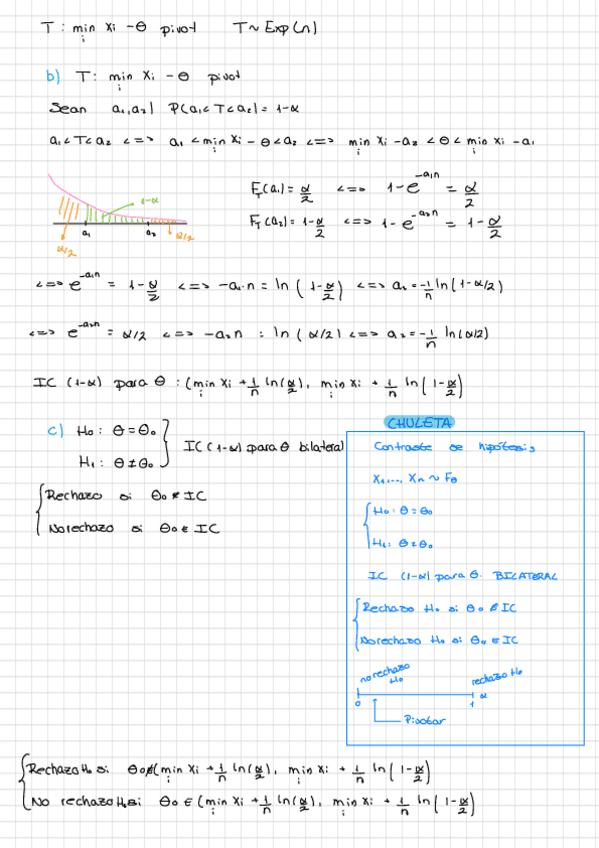 T: min Xi - θ pivot T ~ Exp(n)
i
b) T: min Xi - θ pivot
i
Sean a₁, a₂ | P(a₁ < T < a₂) = 1-α
a₁ < T < a₂ <=> a₁ < min Xi - θ < a₂ <=> min Xi - a₂ < θ < min Xi - a₁
i i i
1-α
a₁ a₂ α/2
α/2
F_T(a₁) = α/2 <=> 1 - e^(-a₁n) = α/2
F_T(a₂) = 1 - α/2 <=> 1 - e^(-a₂n) = 1 - α/2
<=> e^(-a₁n) = 1 - α/2 <=> -a₁·n = ln(1 - α/2) <=> a₁ = -1/n ln(1-α/2)
<=> e^(-a₂n) = α/2 <=> -a₂n = ln(α/2) <=> a₂ = -1/n ln(α/2)
IC (1-α) para θ : (min Xi + 1/n ln(α/2), min Xi + 1/n ln(1 - α/2)
i i
c) H₀: θ = θ₀
H₁: θ ≠ θ₀
IC (1-α) para θ bilateral
Rechazo si θ₀ ∉ IC
No rechazo si θ₀ ∈ IC
CHULETA
Contraste de hipótesis
X₁, ..., Xn ~ Fθ
H₀: θ = θ₀
H₁: θ ≠ θ₀
IC (1-α) para θ. BILATERAL
Rechazo H₀ si θ₀ ∉ IC
No rechazo H₀ si θ₀ ∈ IC
no rechazo H₀ rechazo H₀
0 1 α
Pivotar
Rechazo H₀ si θ₀ ∉ (min Xi + 1/n ln(α/2), min Xi + 1/n ln(1 - α/2)
i i
No rechazo H₀ si θ₀ ∈ (min Xi + 1/n ln(α/2), min Xi + 1/n ln(1 - α/2)
i i